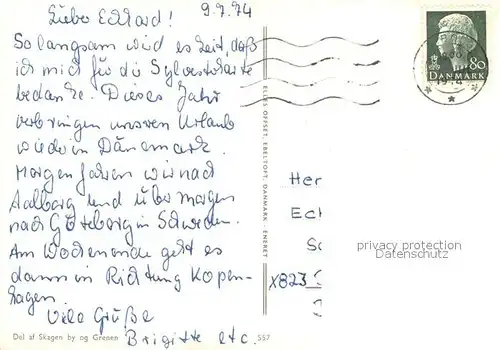 Lieber Eckhard! 9.7.74
So langsam wird es Zeit, daß
ich mich für die Sylvesterkarte
bedanke. Dieses Jahr
verbringen unseren Urlaub
wieder in Dänemark.
Morgen fahren wir nach
Aalborg und übermorgen
nach Göteborg in Schweden.
Am Wochenende geht es
dann in Richtung Kopen-
hagen.
Viele Grüße
Brigitte etc.
Del af Skagen by og Grenen 557
ELLES OFFSET, EBELTOFT, DANMARK. ENERET
80
DANMARK
Her
Ec
S
X823
privacy protection
Datenschutz